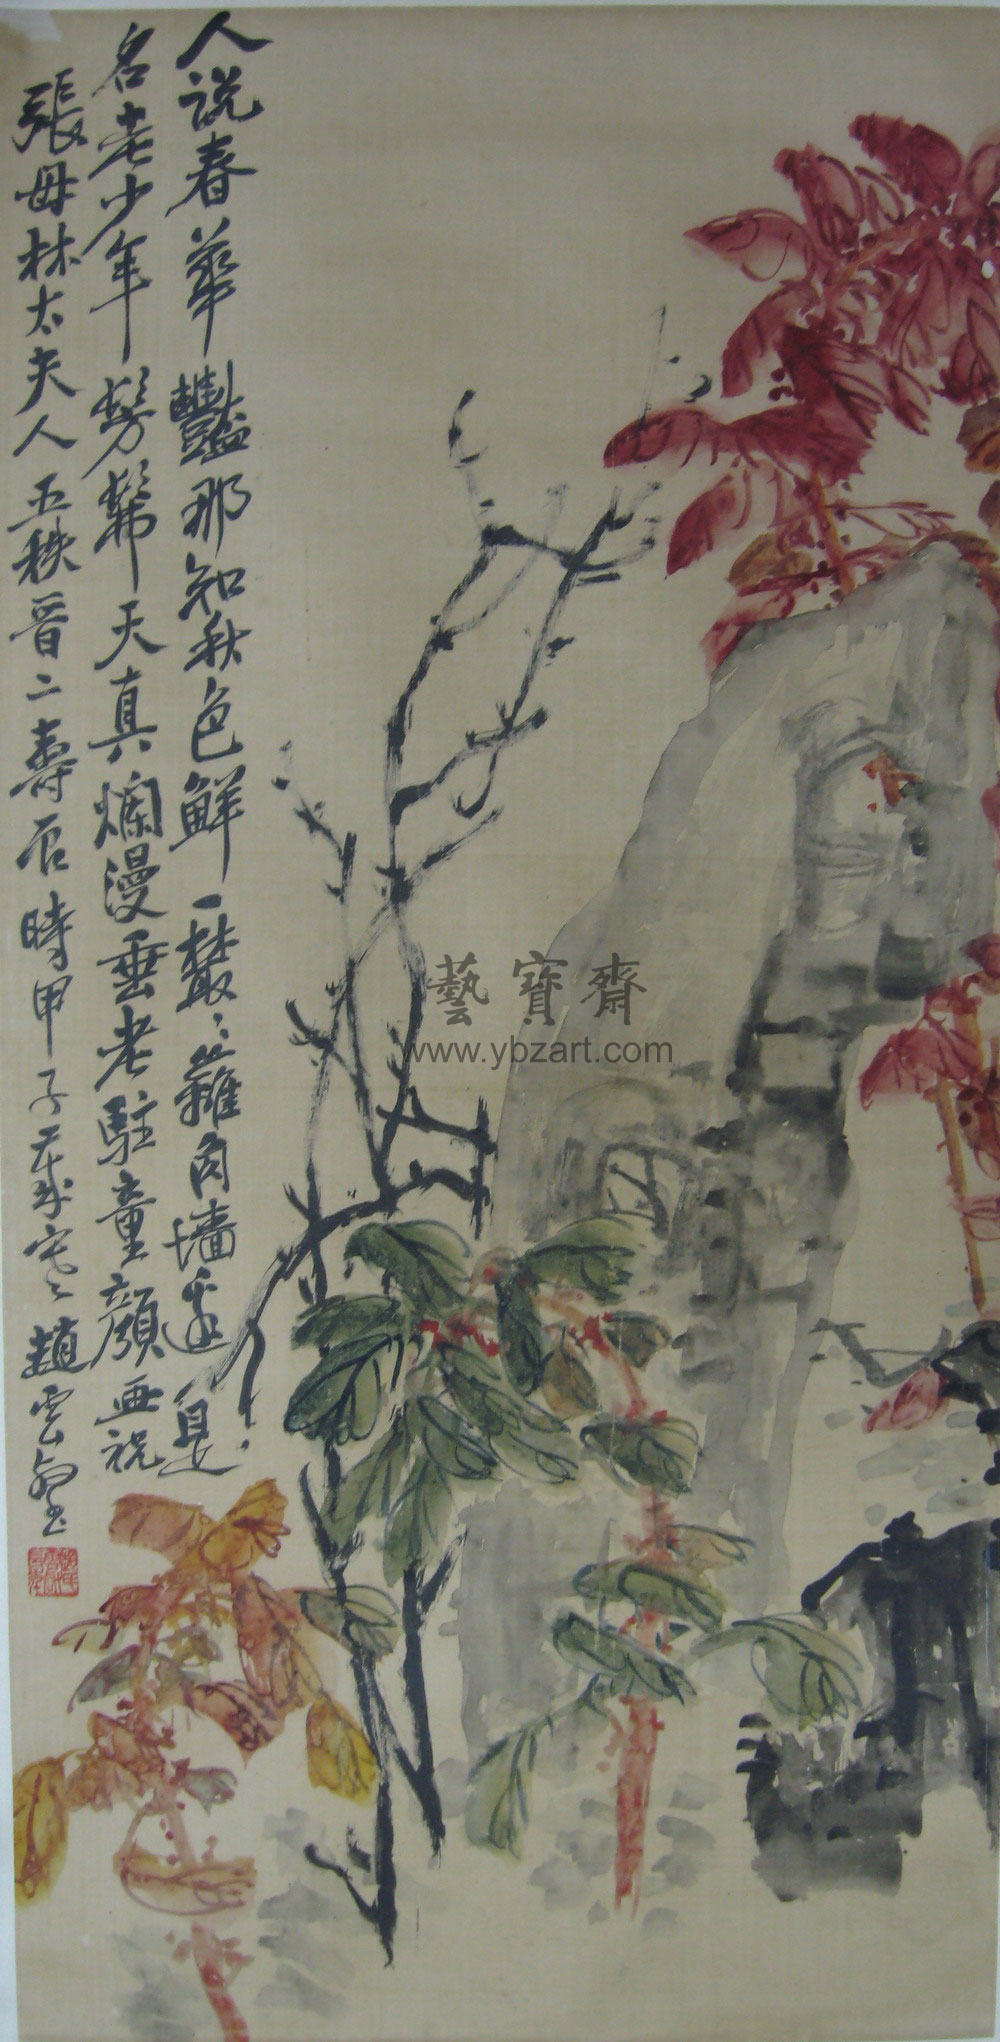 人说春華豔那知秋色鮮一叢叢籬角墻邊是
名老少年髣髴天真爛漫垂老駐童顏画祝
張母林太夫人五秩晉二壽辰時甲子年秋趙雲壑
藝寶齋
www.ybzart.com